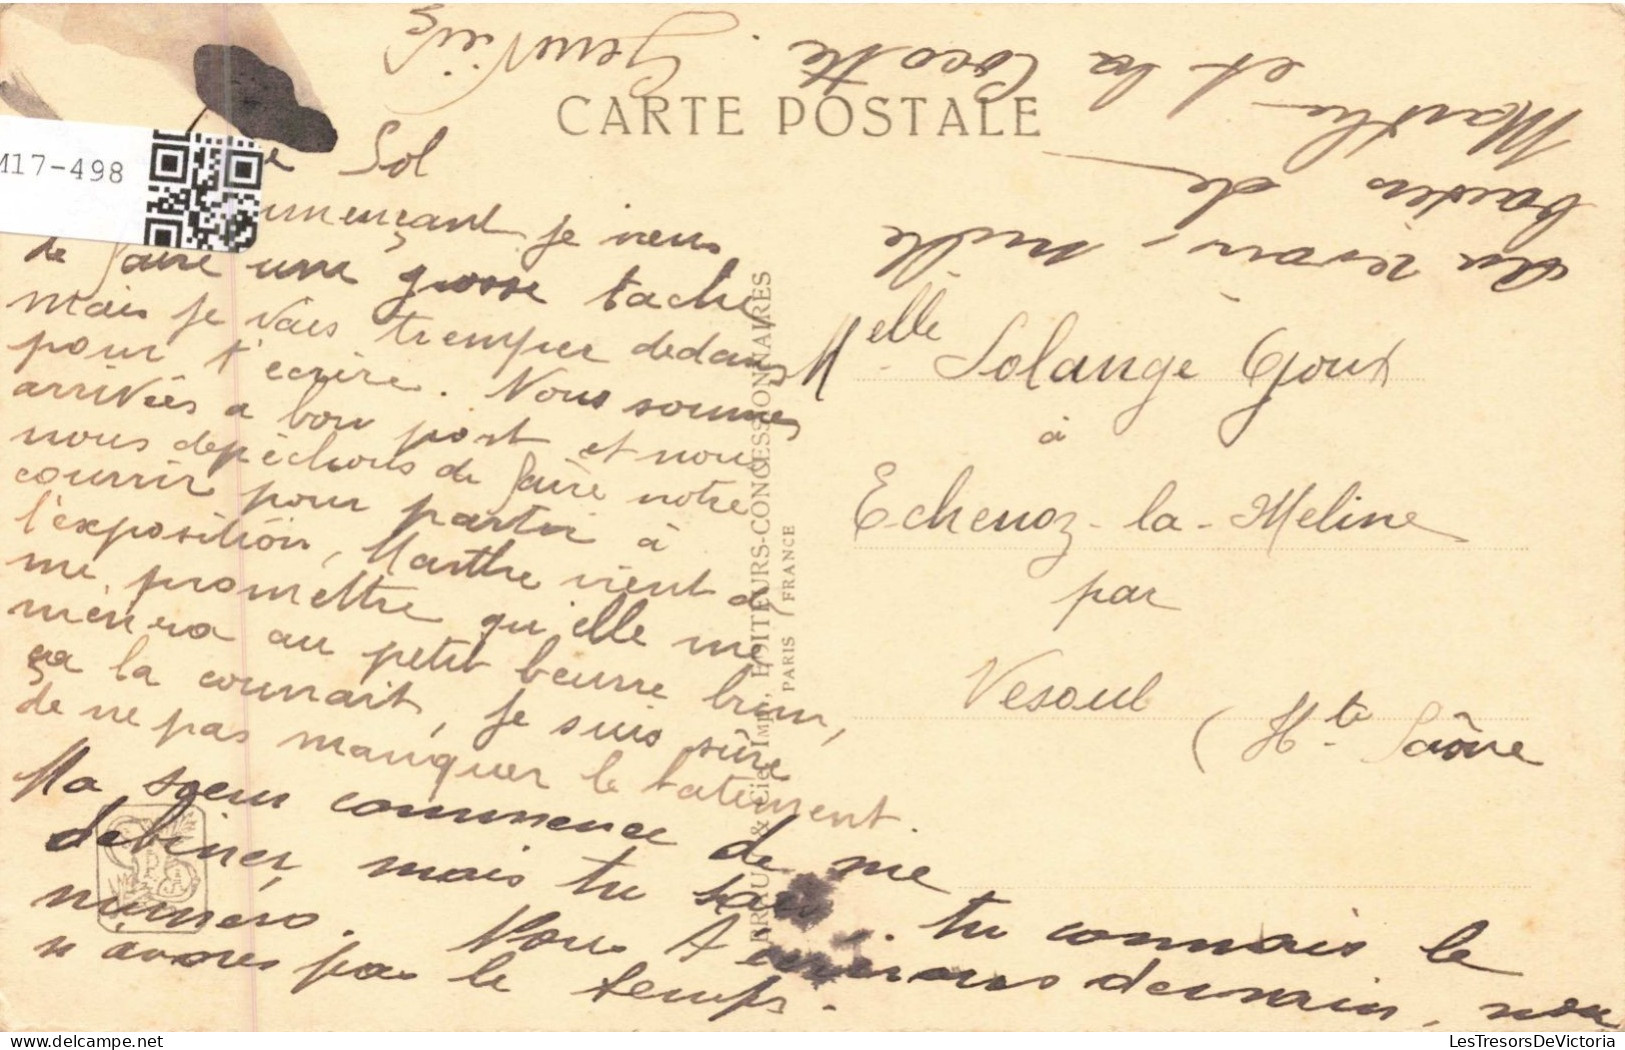 CARTE POSTALE
M17-498
Sol
mençant je viens
de faire une grosse tache,
mais je vais tremper dedans
pour t'écrire. Nous sommes
arrivées a bon port et nous
nous depêchons de faire notre
courrir pour partir à
l'exposition, Marthe vient de
me promettre qu'elle me
mènera au petit beurre
ça la connait, je suis sûre
de ne pas manquer le batiment.
Ma soeur commence de me
debiner, mais tu sais. tu connais le
numéro. Nous écrirons demain, nous
n'avons pas le temps.
Au revoir, mille
baisers de
Marthe
et la Cocotte. Geneviève
Melle Solange Goux
à
Echenoz-la-Meline
par
Vesoul
(Hte Saône
BRAUN & Cie Imp., EDITEURS-CONCESSIONNAIRES
PARIS (FRANCE
LesTresorsDeVictoria.com